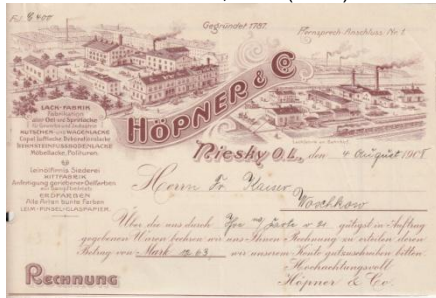 Gegründet 1787.
Fernsprech-Anschluss No. 1
HÖPNER & Co
LACK-FABRIK
Fabrikation
aller Oel- und Spritlacke
KUTSCHEN- UND WAGENLACKE
BERNSTEINFUSSBODENLACKE
Möbellacke, Polituren.
Leinölfirnis Siederei
KITTFABRIK
Anfertigung geriebener Oelfarben
ERDFARBEN
Alle Arten bunte Farben
LEIM-PINSEL-GLASPAPIER
Niesky O.L., den 4 August 1908
Herrn Fr.
Über die uns durch Ihre gütigst in Auftrag
gegebenen Waren beehren wir uns Ihnen Rechnung zu erteilen deren
Betrag von Mark 12 63 wir unserem Konto gutzuschreiben bitten.
Hochachtungsvoll
Höpner & Co.
Rechnung